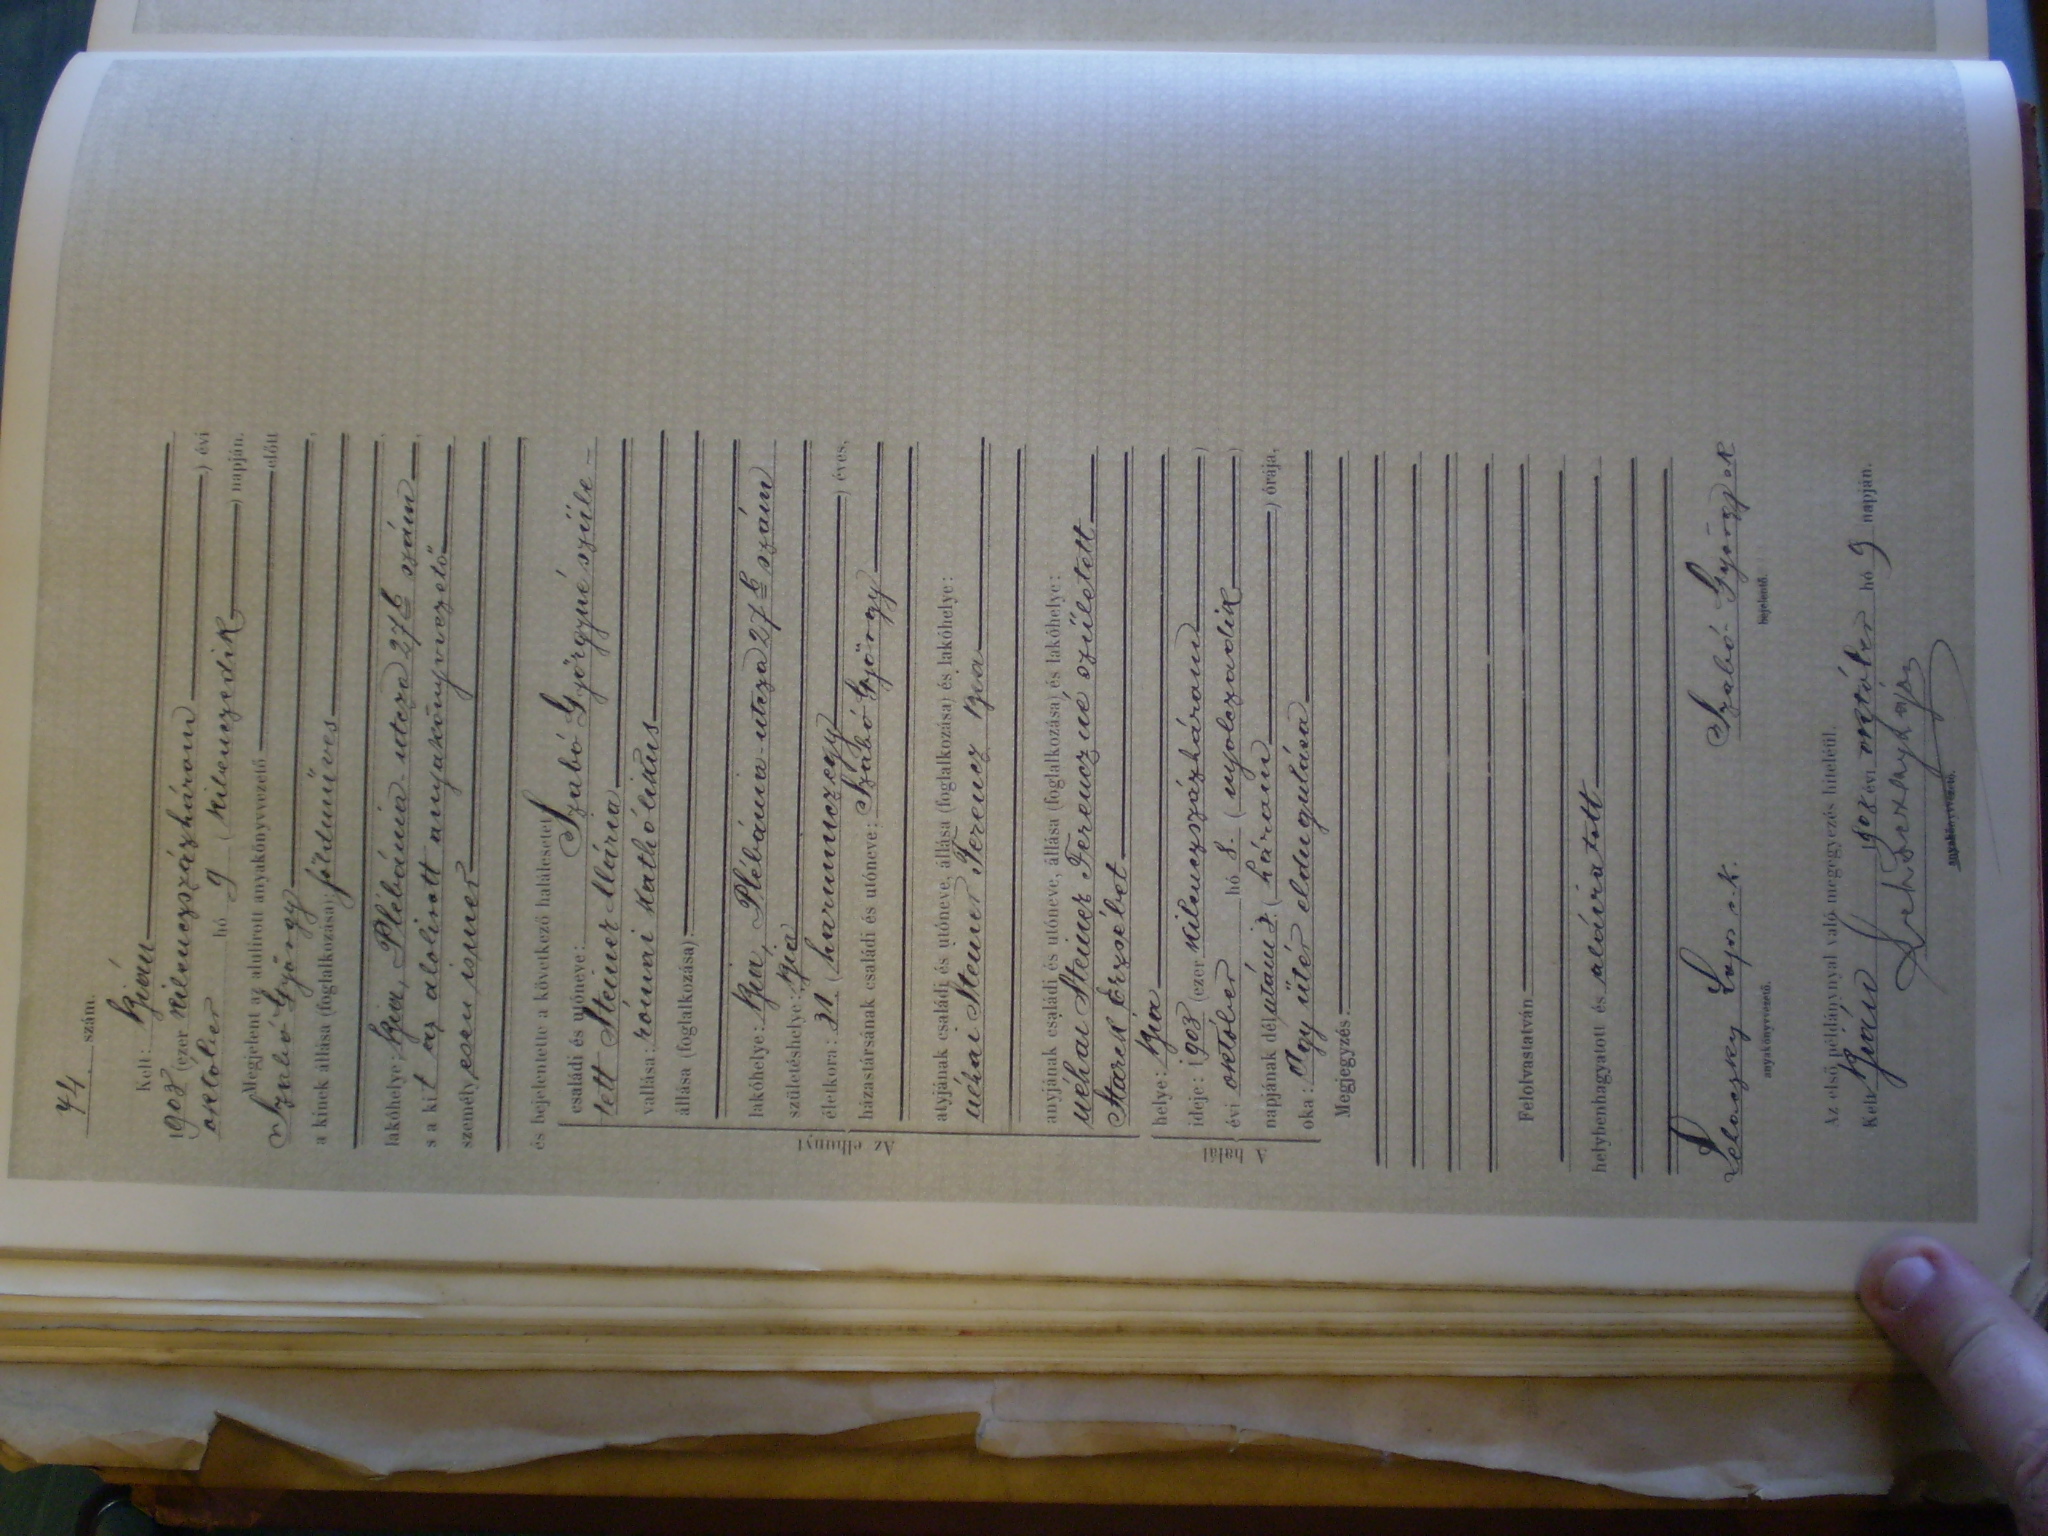 44. szám.
Kelt: Bián
1903 (ezer kilenczszázhárom) évi
október hó 9 (kilenczedik) napján.
Megjelent az alulirott anyakönyvvezető előtt
Szabó György
a kinek állása (foglalkozása): földmüves
lakóhelye: Bia, Plébánia-utcza 27 b szám
s a kit az alolirott anyakönyvvezető
személyesen ismer
és bejelentette a következő halálesetet:
Az elhunyt
családi és utóneve: Szabó Györgyné szüle-
tett Steiner Mária
vallása: római katholikus
állása (foglalkozása):
lakóhelye: Bia, Plébánia-utcza 27 b szám
születéshelye: Bia
életkora: 31 (harminczegy) éves,
házastársának családi és utóneve: Szabó György
atyjának családi és utóneve, állása (foglalkozása) és lakóhelye:
néhai Steiner Ferencz Bia
anyjának családi és utóneve, állása (foglalkozása) és lakóhelye:
néhai Steiner Ferenczné született
Starek Erzsébet
A halál
helye: Bia
ideje: 1903 (ezer kilenczszázhárom)
évi október hó 8. (nyolczadik)
napjának délután 3. (három) órája,
oka: Agy ütér eldugulása
Megjegyzés:
Felolvastatván
helybenhagyatott és aláiratott
Lajos s. k. Szabó György s k
anyakönyvvezető. bejelentő.
Az első példánynyal való megegyezés hiteléül.
Kelt Bián 1903 évi október hó 9 napján.
anyakönyvvezető.